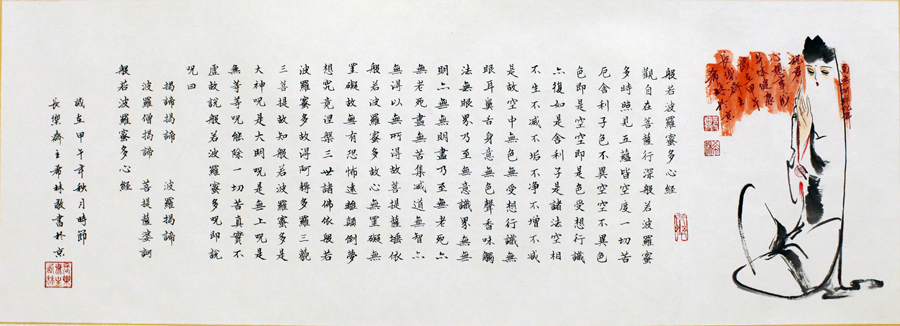 般若波羅蜜多心經
觀自在菩薩行深般若波羅蜜
多時照見五蘊皆空度一切苦
厄舍利子色不異空空不異色
色即是空空即是色受想行識
亦復如是舍利子是諸法空相
不生不滅不垢不淨不增不減
是故空中無色無受想行識無
眼耳鼻舌身意無色聲香味觸
法無眼界乃至無意識界無無
明亦無無明盡乃至無老死亦
無老死盡無苦集滅道無智亦
無得以無所得故菩提薩埵依
般若波羅蜜多故心無罣礙無
罣礙故無有恐怖遠離顛倒夢
想究竟涅槃三世諸佛依般若
波羅蜜多故得阿耨多羅三藐
三菩提故知般若波羅蜜多是
大神呪是大明呪是無上呪是
無等等呪能除一切苦真實不
虛故說般若波羅蜜多呪即說
呪曰
揭諦揭諦 波羅揭諦
波羅僧揭諦 菩提薩婆訶
般若波羅蜜多心經
歲在甲午年秋月時節
長樂齋主希林敬書於京